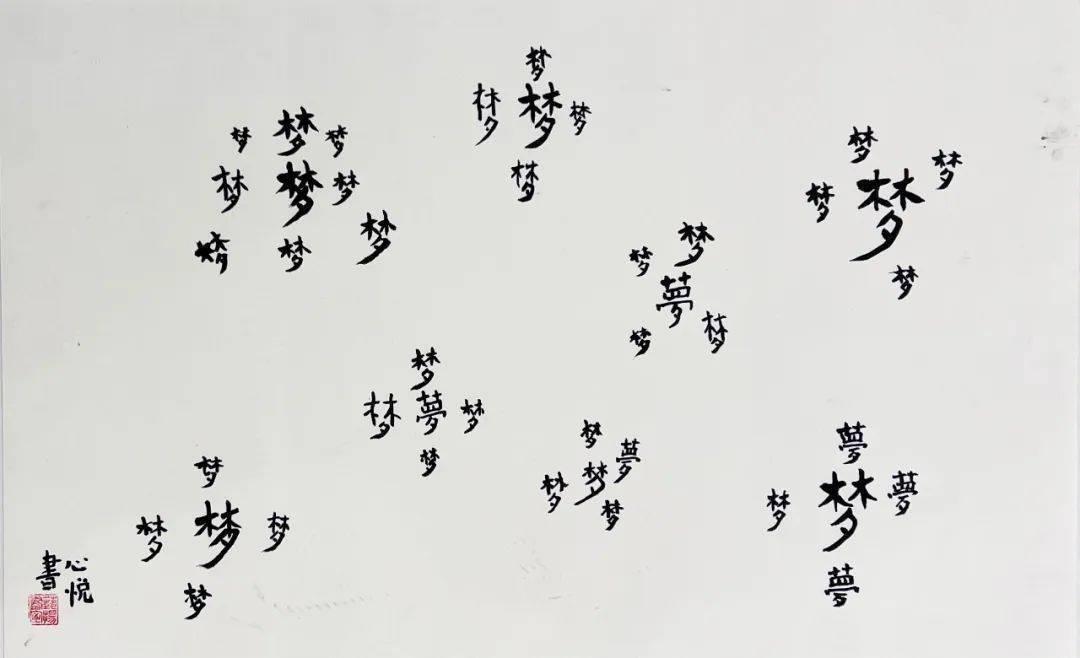 梦 梦 梦
梦 梦 梦
梦 梦 梦
梦
梦 梦 梦
梦
梦 梦
梦 梦
梦
梦 梦
夢
梦 梦
梦
梦 夢 梦
梦
梦 夢
梦 梦
梦
夢
梦 梦 夢
夢
梦
梦 梦 梦
梦
心悦
書